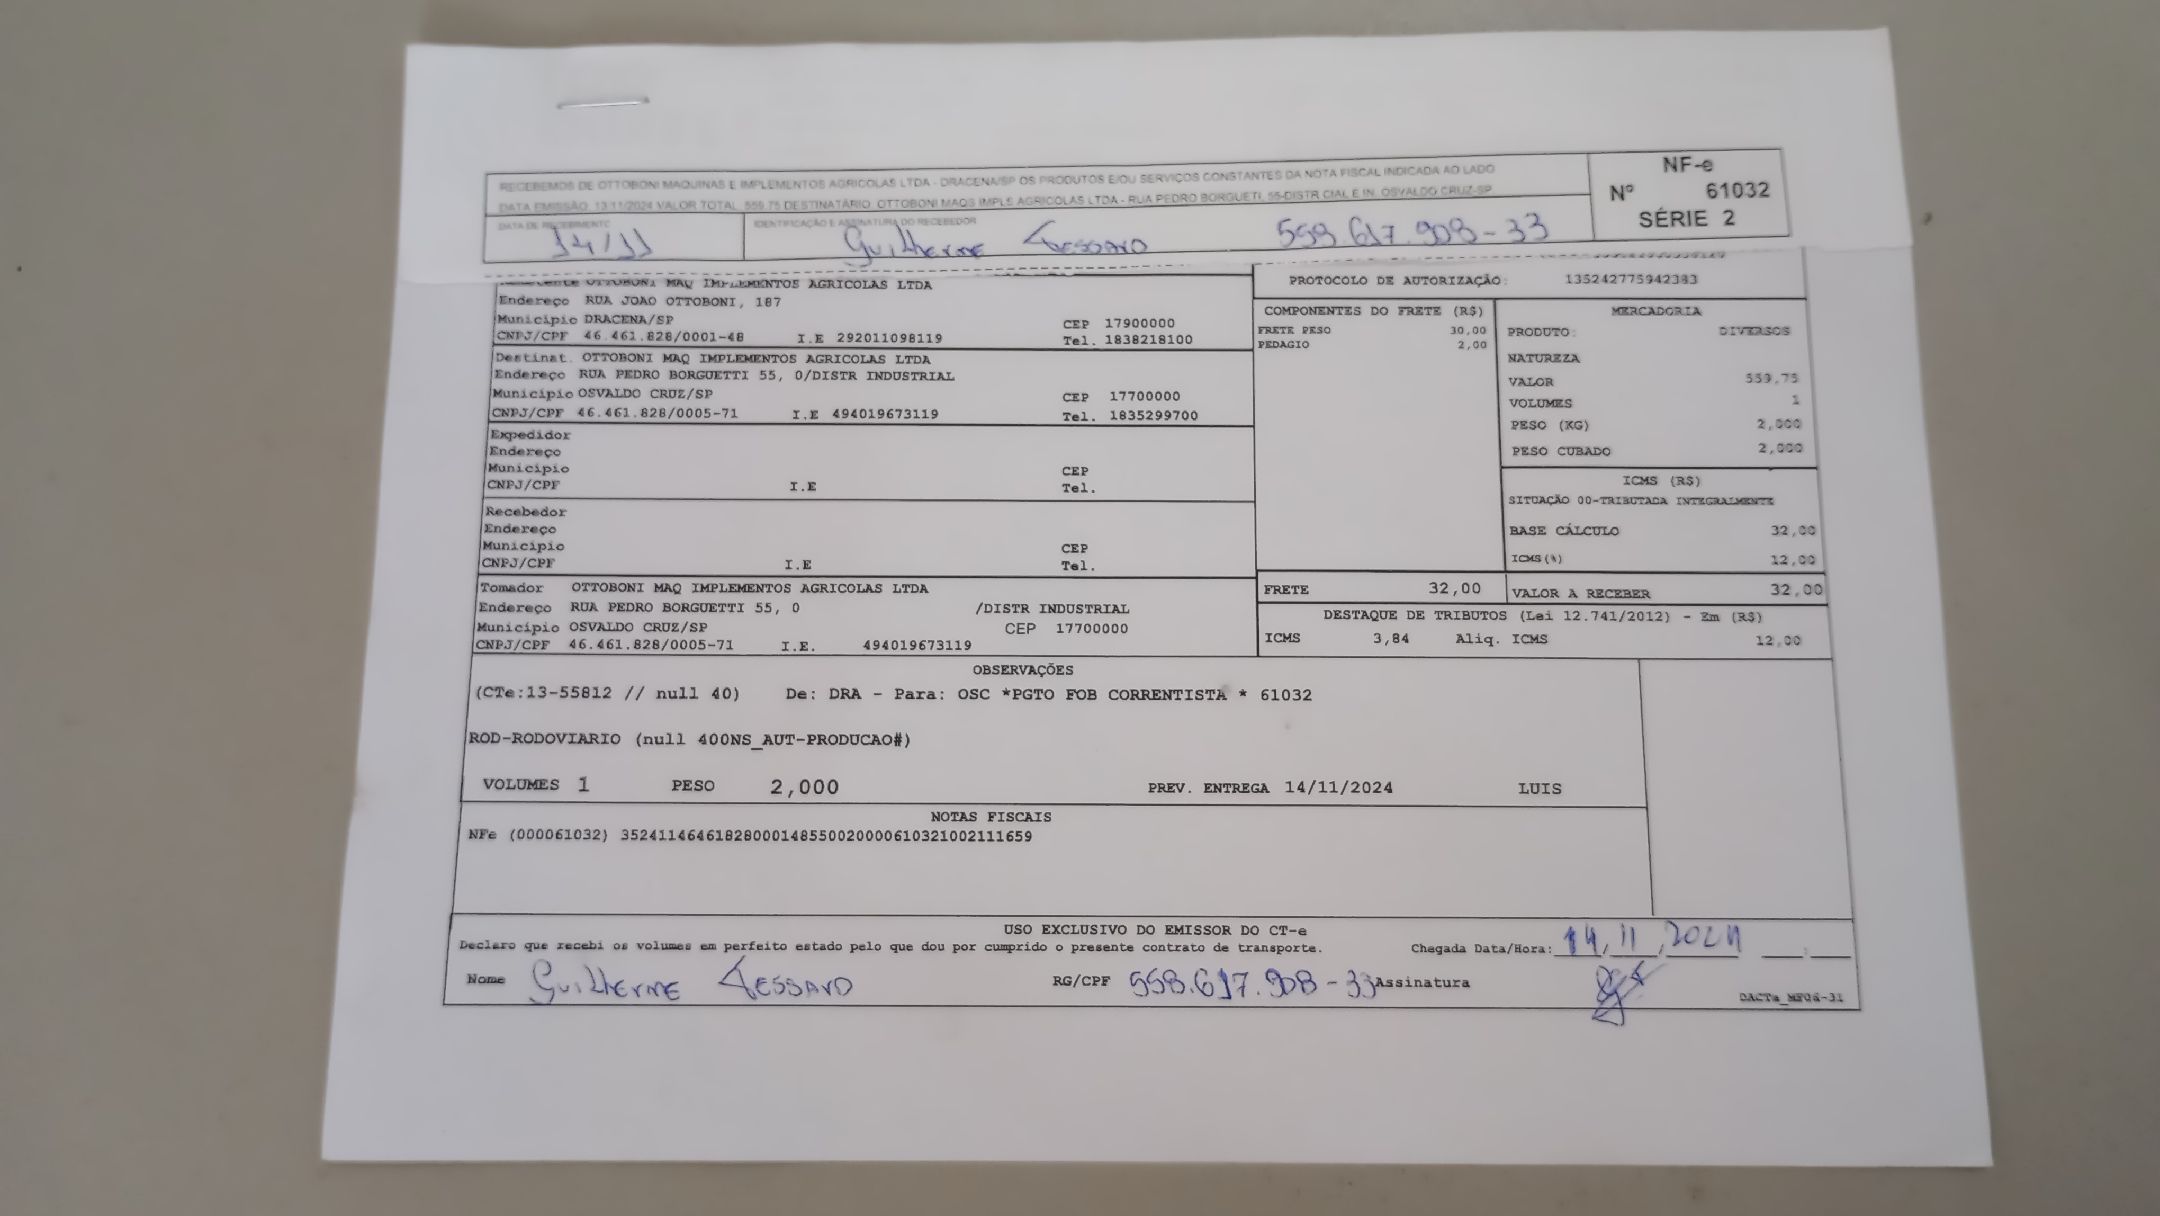 RECEBEMOS DE OTTOBONI MAQUINAS E IMPLEMENTOS AGRICOLAS LTDA - DRACENA/SP OS PRODUTOS E/OU SERVIÇOS CONSTANTES DA NOTA FISCAL INDICADA AO LADO
DATA EMISSÃO: 13/11/2024 VALOR TOTAL: 559,75 DESTINATÁRIO: OTTOBONI MAQS IMPLS AGRICOLAS LTDA - RUA PEDRO BORGUETI, 55-DISTR CIAL E IN, OSVALDO CRUZ-SP
NF-e
Nº 61032
SÉRIE 2
DATA DE RECEBIMENTO
14/11
IDENTIFICAÇÃO E ASSINATURA DO RECEBEDOR
Guilherme Tessaro 558.617.908-33
OTTOBONI MAQ IMPLEMENTOS AGRICOLAS LTDA
Endereço RUA JOAO OTTOBONI, 187
Município DRACENA/SP CEP 17900000
CNPJ/CPF 46.461.828/0001-48 I.E 292011098119 Tel. 1838218100
Destinat. OTTOBONI MAQ IMPLEMENTOS AGRICOLAS LTDA
Endereço RUA PEDRO BORGUETTI 55, 0/DISTR INDUSTRIAL
Município OSVALDO CRUZ/SP CEP 17700000
CNPJ/CPF 46.461.828/0005-71 I.E 494019673119 Tel. 1835299700
Expedidor
Endereço
Município CEP
CNPJ/CPF I.E Tel.
Recebedor
Endereço
Município CEP
CNPJ/CPF I.E Tel.
Tomador OTTOBONI MAQ IMPLEMENTOS AGRICOLAS LTDA
Endereço RUA PEDRO BORGUETTI 55, 0 /DISTR INDUSTRIAL
Município OSVALDO CRUZ/SP CEP 17700000
CNPJ/CPF 46.461.828/0005-71 I.E. 494019673119
PROTOCOLO DE AUTORIZAÇÃO: 135242775942383
COMPONENTES DO FRETE (R$)
FRETE PESO 30,00
PEDAGIO 2,00
MERCADORIA
PRODUTO: DIVERSOS
NATUREZA
VALOR 559,75
VOLUMES 1
PESO (KG) 2,000
PESO CUBADO 2,000
ICMS (R$)
SITUAÇÃO 00-TRIBUTADA INTEGRALMENTE
BASE CÁLCULO 32,00
ICMS(%) 12,00
FRETE 32,00 VALOR A RECEBER 32,00
DESTAQUE DE TRIBUTOS (Lei 12.741/2012) - Em (R$)
ICMS 3,84 Aliq. ICMS 12,00
OBSERVAÇÕES
(CTe:13-55812 // null 40) De: DRA - Para: OSC *PGTO FOB CORRENTISTA * 61032
ROD-RODOVIARIO (null 400NS_AUT-PRODUCAO#)
VOLUMES 1 PESO 2,000 PREV. ENTREGA 14/11/2024 LUIS
NOTAS FISCAIS
NFe (000061032) 35241146461828000148550020000610321002111659
USO EXCLUSIVO DO EMISSOR DO CT-e
Declaro que recebi os volumes em perfeito estado pelo que dou por cumprido o presente contrato de transporte. Chegada Data/Hora: 14/11/2024
Nome Guilherme Tessaro RG/CPF 558.617.908-33 Assinatura
DACTe_MF06-31